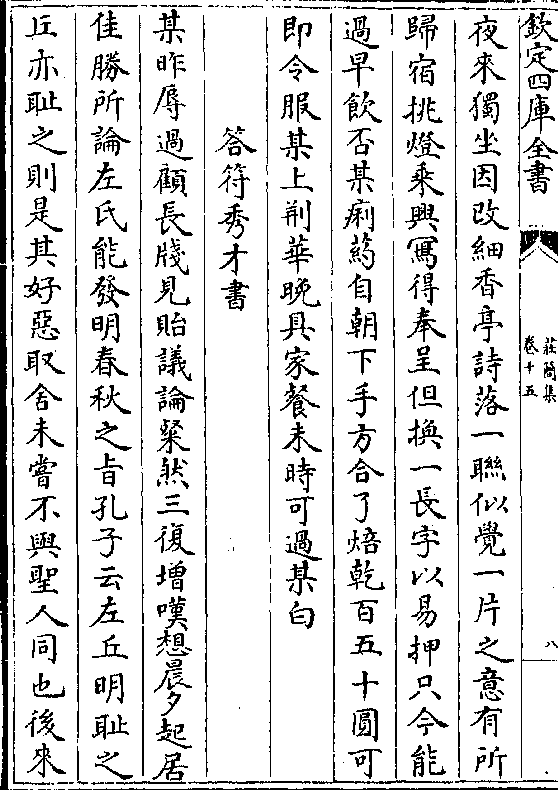 欽定四庫全書
莊簡集
卷十五
八
夜來獨坐因改細香亭詩落一聯似覺一片之意有所
歸宿挑燈乘興寫得奉呈但換一長字以易押只今能
過早飲否某痢藥自朝下手方合了焙乾百五十圓可
即令服某上荆華晚具家餐未時可過某白
答符秀才書
某昨辱過顧長牋見貽議論粲然三復增嘆想晨夕起居
佳勝所論左氏能發明春秋之旨孔子云左丘明耻之
丘亦耻之則是其好惡取舍未嘗不與聖人同也後來